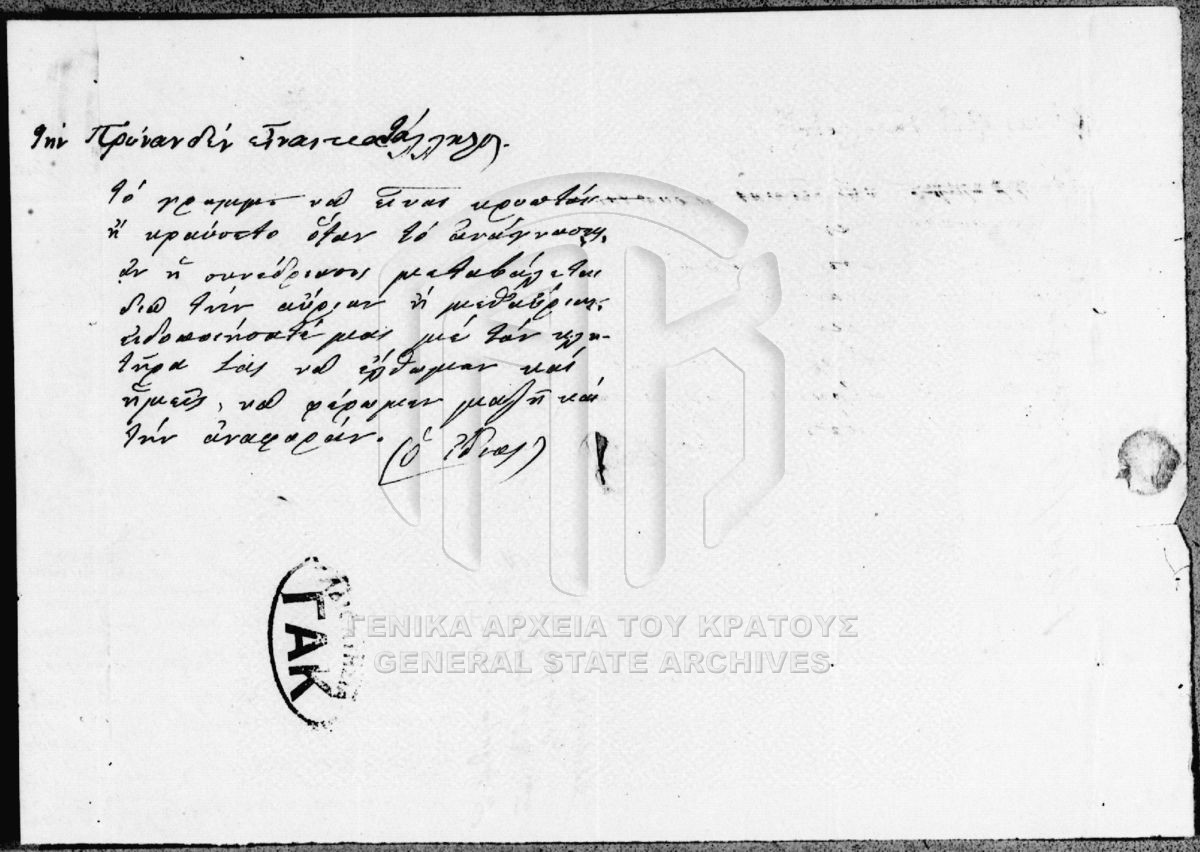 τὴν Πρύναν δὲν εἶναι κατάλληλος.
τὸ γράμμα νὰ εἶναι κρυπτὸν
ἢ καύσετο ὅταν τὸ ἀναγνώσης,
ἂν ἡ συνεδρίασις μεταβάλεται
διὰ τὴν αὔριον ἢ μεθαύριον,
εἰδοποιήσατέ μας μὲ τὸν κλη-
τῆρα σας νὰ ἔλθωμεν καὶ
ἡμεῖς, νὰ φέρωμεν μαζῆ καὶ
τὴν ἀναφοράν.
(ὁ ἴδιος)
ΓΑΚ
ΓΕΝΙΚΑ ΑΡΧΕΙΑ ΤΟΥ ΚΡΑΤΟΥΣ
GENERAL STATE ARCHIVES